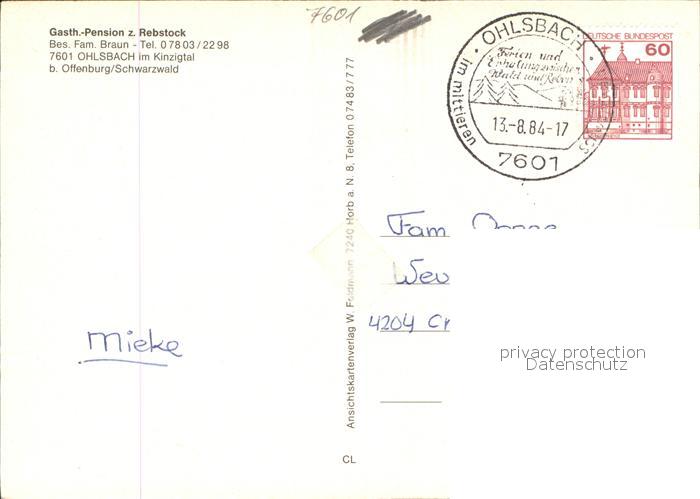 7601
Gasth.-Pension z. Rebstock
Bes. Fam. Braun - Tel. 0 78 03 / 22 98
7601 OHLSBACH im Kinzigtal
b. Offenburg/Schwarzwald
· OHLSBACH ·
Ferien und
Erholung zwischen
Wald und Reben
im mittleren
13.-8.84-17
7601
DEUTSCHE BUNDESPOST
60
Ansichtskartenverlag W. Feldmann 7240 Horb a. N. 8, Telefon 0 74 83 / 7 77
Fam
4204
Mieke
privacy protection
Datenschutz
CL